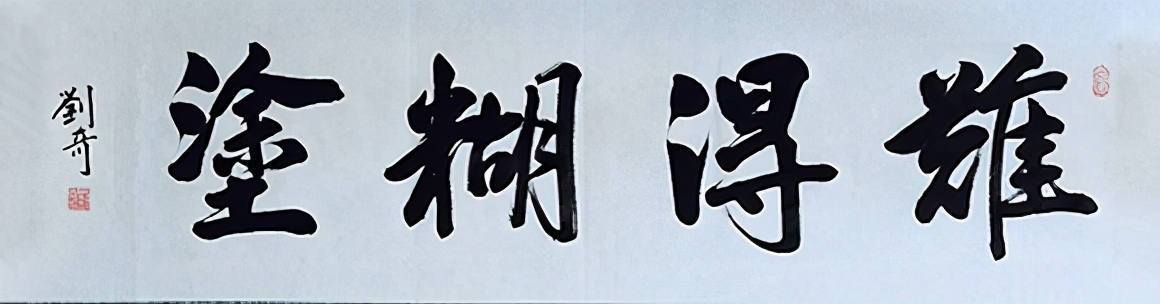 難得糊塗
劉奇